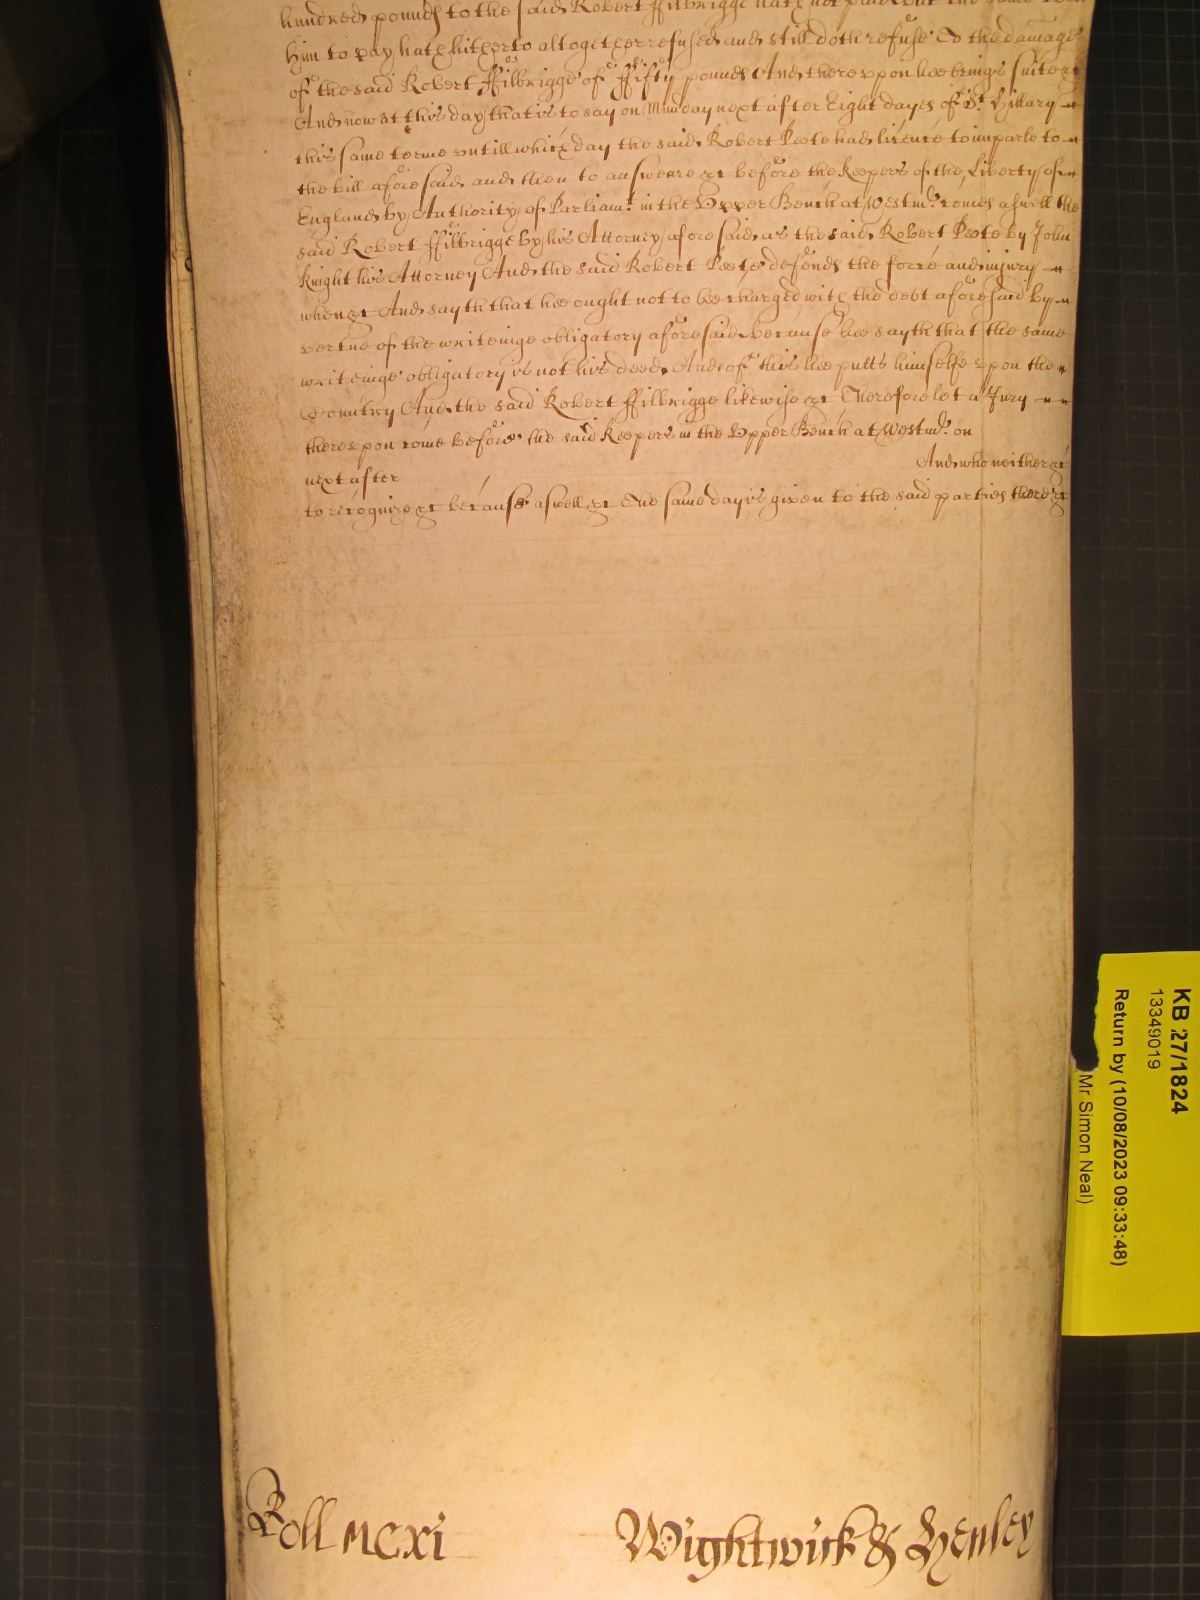 hundred pounds to the said Robert ffilbrigge hath not paid but the same
him to pay hath hitherto altogether refused and still doth refuse To the damage
of the said Robert ffilbrigge of ffifty pounds And thereupon hee brings suite &c
And now at this day that is to say on Munday next after Eight dayes of St. Hillary
this same terme untill which day the said Robert Peete had licence to imparle to
the bill aforesaid and then to answere &c before the keepers of the Liberty of
England by Authority of Parliamt. in the Upper Bench at Westmr. comes aswell the
said Robert ffilbrigge by his Attorney aforesaid as the said Robert Peete by John
Knight his Attorney And the said Robert Peete defends the force and injury
when &c And sayth that hee ought not to bee charged with the debt aforesaid by
vertue of the writeinge obligatory aforesaid because hee sayth that the same
writeinge obligatory is not his deed And of this hee putts himselfe upon the
Countrey And the said Robert ffilbrigge likewise &c Therefore let a Jury
thereupon come before the said keepers in the Upper Bench at Westmr. on
next after And who neither &c
to recognize &c because aswell &c The same day is given to the said parties there &c
Roll MCXI Wightwick & Henley
KB 27/1824
13349019
Return by (10/08/2023 09:33:48)
Mr Simon Neal)